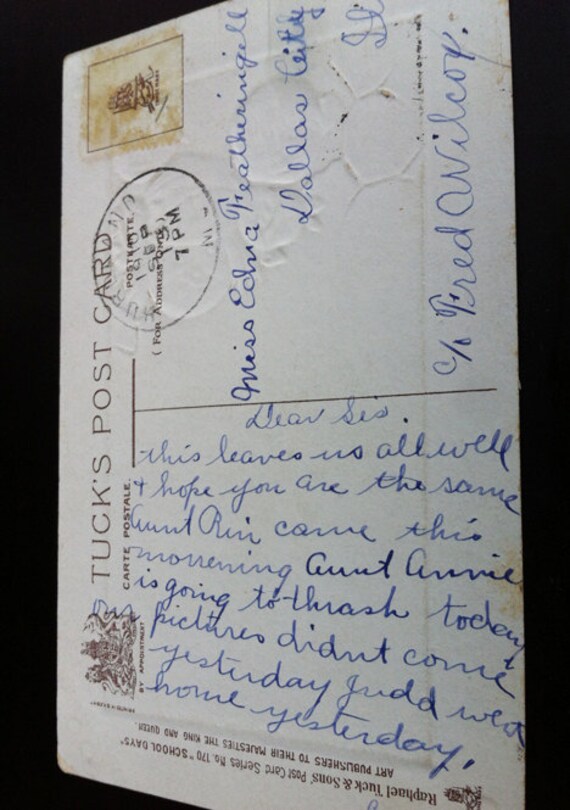 TUCK'S POST CARD
CARTE POSTALE.
POSTKARTE.
( FOR ADDRESS ONLY. )
SEP
7 PM
BY APPOINTMENT
Dear Sis.
this leaves us all well
& hope you are the same
Aunt Rin came this
morrening Aunt Annie
is going to thrash today
Our pictures didnt come
yesterday Judd went
home yesterday.
Miss Edna Featheringell
Dallas City
Ill
c/o Fred Wilcox.
Raphael Tuck & Sons' Post Card Series No. 170 "SCHOOL DAYS"
ART PUBLISHERS TO THEIR MAJESTIES THE KING AND QUEEN.